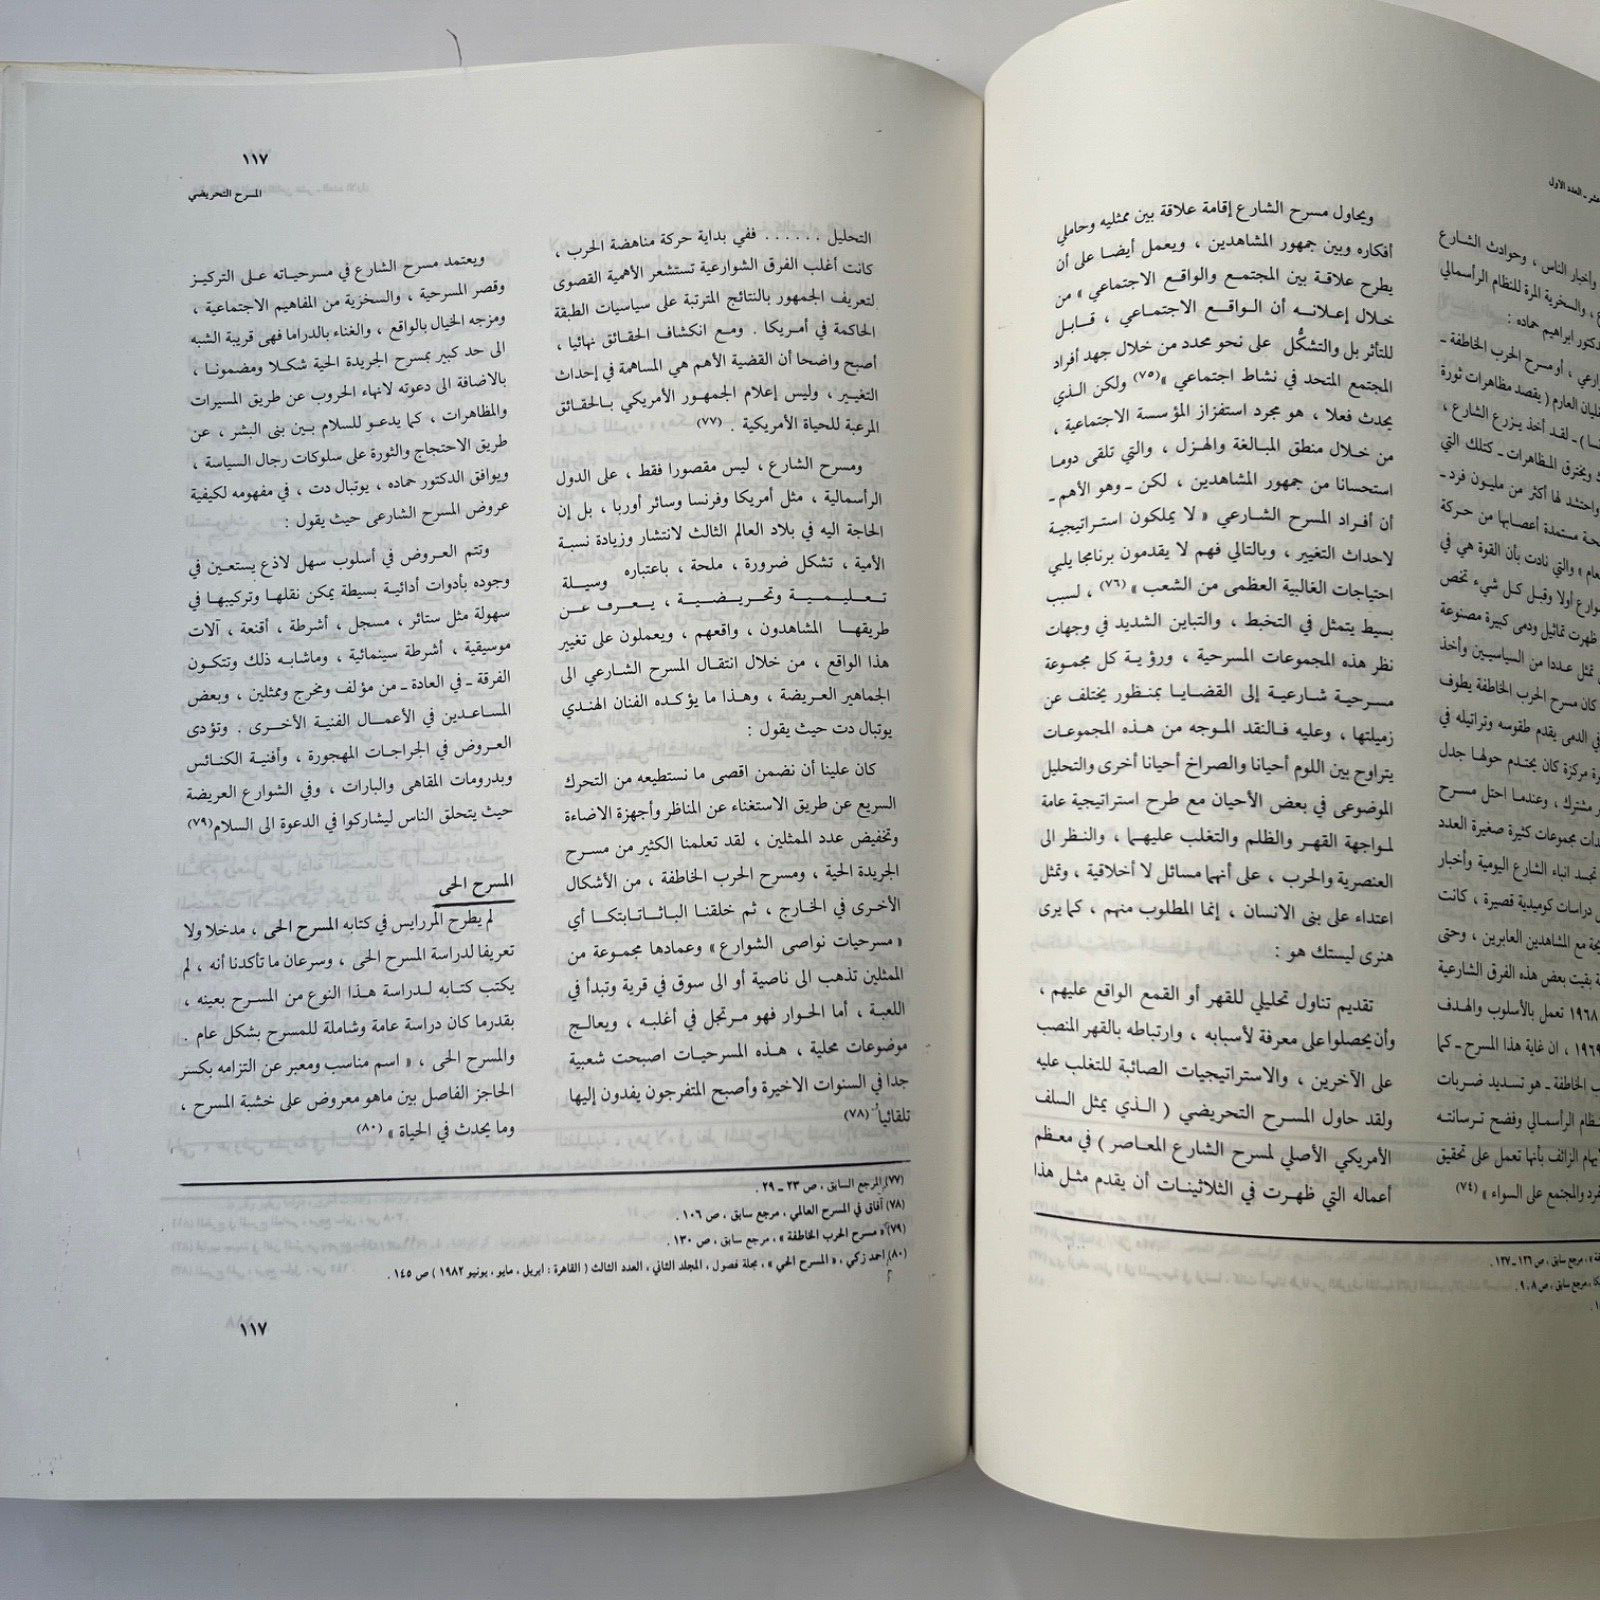 عشر ـ العدد الأول
واخبار الناس ، وحوادث الشارع
، والسخرية المرة للنظام الرأسمالي
دكتور ابراهيم حماده :
ارعي ، أو مسرح الحرب الخاطفة ـ
غليان العارم ( يقصد مظاهرات ثورة
ـ لقد أخذ يزرع الشارع ،
ويخترق المظاهرات ـ كتلك التي
واحتشد لها أكثر من مليون فرد ـ
مستمدة أعصابها من حركة
والتي نادت بأن القوة هي في
وارع أولا وقبل كل شيء تخص
ظهرت تماثيل ودمى كبيرة مصنوعة
تمثل عددا من السياسيين وأخذ
كان مسرح الحرب الخاطفة يطوف
في الدمى يقدم طقوسه وتراتيله في
مركزة كان يحتدم حولها جدل
مشترك ، وعندما احتل مسرح
مجموعات كثيرة صغيرة العدد
تجسد انباء الشارع اليومية وأخبار
دراسات كوميدية قصيرة ، كانت
مع المشاهدين العابرين ، وحتى
بقيت بعض هذه الفرق الشارعية
١٩٦٨ تعمل بالأسلوب والهدف
١٩٦٩ ، ان غاية هذا المسرح ـ كما
الخاطفة ـ هو تسديد ضربات
النظام الرأسمالي وفضح ترسانته
الزائف بأنها تعمل على تحقيق
والمجتمع على السواء » (٧٤)
ويحاول مسرح الشارع إقامة علاقة بين ممثليه وحاملي
أفكاره وبين جمهور المشاهدين ، ويعمل أيضا على أن
يطرح علاقة بين المجتمع والواقع الاجتماعي « من
خلال إعلانه أن الواقع الاجتماعي ، قابل
للتأثر بل والتشكُّل على نحو محدد من خلال جهد أفراد
المجتمع المتحد في نشاط اجتماعي »(٧٥) ولكن الذي
يحدث فعلا ، هو مجرد استفزاز المؤسسة الاجتماعية ،
من خلال منطق المبالغة والهزل ، والتي تلقى دوما
استحسانا من جمهور المشاهدين ، لكن ـ وهو الأهم ـ
أن أفراد المسرح الشارعي « لا يملكون استراتيجية
لاحداث التغيير ، وبالتالي فهم لا يقدمون برنامجا يلبي
احتياجات الغالبية العظمى من الشعب » (٧٦) ، لسبب
بسيط يتمثل في التخبط ، والتباين الشديد في وجهات
نظر هذه المجموعات المسرحية ، ورؤية كل مجموعة
مسرحية شارعية إلى القضايا بمنظور يختلف عن
زميلتها ، وعليه فالنقد الموجه من هذه المجموعات
يتراوح بين اللوم أحيانا والصراخ أحيانا أخرى والتحليل
الموضوعى في بعض الأحيان مع طرح استراتيجية عامة
لمواجهة القهر والظلم والتغلب عليهما ، والنظر الى
العنصرية والحرب ، على أنهما مسائل لا أخلاقية ، وتمثل
اعتداء على بنى الانسان ، إنما المطلوب منهم ، كما يرى
هنرى ليستك هو :
تقديم تناول تحليلي للقهر أو القمع الواقع عليهم ،
وأن يحصلوا على معرفة لأسبابه ، وارتباطه بالقهر المنصب
على الآخرين ، والاستراتيجيات الصائبة للتغلب عليه
ولقد حاول المسرح التحريضي ( الذي يمثل السلف
الأمريكي الأصلي لمسرح الشارع المعاصر ) في معظم
أعماله التي ظهرت في الثلاثينات أن يقدم مثل هذا
، مرجع سابق ، ص ١٢٦ ـ ١٢٧ .
، مرجع سابق ، ص ٩٠٨ .
١١٧
المسرح التحريضي
التحليل . . . . . . ففي بداية حركة مناهضة الحرب ،
كانت أغلب الفرق الشوارعية تستشعر الأهمية القصوى
لتعريف الجمهور بالنتائج المترتبة على سياسيات الطبقة
الحاكمة في أمريكا . ومع انكشاف الحقائق نهائيا ،
أصبح واضحا أن القضية الأهم هي المساهمة في إحداث
التغيير ، وليس إعلام الجمهور الأمريكي بالحقائق
المرعبة للحياة الأمريكية . (٧٧)
ومسرح الشارع ، ليس مقصورا فقط ، على الدول
الرأسمالية ، مثل أمريكا وفرنسا وسائر أوربا ، بل إن
الحاجة اليه في بلاد العالم الثالث لانتشار وزيادة نسبة
الأمية ، تشكل ضرورة ، ملحة ، باعتباره وسيلة
تعليمية وتحريضية ، يعرف عن
طريقها المشاهدون ، واقعهم ، ويعملون على تغيير
هذا الواقع ، من خلال انتقال المسرح الشارعي الى
الجماهير العريضة ، وهذا ما يؤكده الفنان الهندي
يوتبال دت حيث يقول :
كان علينا أن نضمن اقصى ما نستطيعه من التحرك
السريع عن طريق الاستغناء عن المناظر وأجهزة الاضاءة
وتخفيض عدد الممثلين ، لقد تعلمنا الكثير من مسرح
الجريدة الحية ، ومسرح الحرب الخاطفة ، من الأشكال
الأخرى في الخارج ، ثم خلقنا الباثاتابتكا أي
« مسرحيات نواصى الشوارع » وعمادها مجموعة من
الممثلين تذهب الى ناصية أو الى سوق في قرية وتبدأ في
اللعبة ، أما الحوار فهو مرتجل في أغلبه ، ويعالج
موضوعات محلية ، هذه المسرحيات اصبحت شعبية
جدا في السنوات الاخيرة وأصبح المتفرجون يفدون إليها
تلقائياً (٧٨)
ويعتمد مسرح الشارع في مسرحياته على التركيز
وقصر المسرحية ، والسخرية من المفاهيم الاجتماعية ،
ومزجه الخيال بالواقع ، والغناء بالدراما فهى قريبة الشبه
الى حد كبير بمسرح الجريدة الحية شكلا ومضمونا ،
بالاضافة الى دعوته لانهاء الحروب عن طريق المسيرات
والمظاهرات ، كما يدعو للسلام بين بنى البشر ، عن
طريق الاحتجاج والثورة على سلوكات رجال السياسة ،
ويوافق الدكتور حماده ، يوتبال دت ، في مفهومه لكيفية
عروض المسرح الشارعى حيث يقول :
وتتم العروض في أسلوب سهل لاذع يستعين في
وجوده بأدوات أدائية بسيطة يمكن نقلها وتركيبها في
سهولة مثل ستائر ، مسجل ، أشرطة ، أقنعة ، آلات
موسيقية ، أشرطة سينمائية ، وماشابه ذلك وتتكون
الفرقة ـ في العادة ـ من مؤلف ومخرج وممثلين ، وبعض
المساعدين في الأعمال الفنية الأخرى . وتؤدى
العروض في الجراجات المهجورة ، وأفنية الكنائس
وبدرومات المقاهى والبارات ، وفي الشوارع العريضة
حيث يتحلق الناس ليشاركوا في الدعوة الى السلام(٧٩)
المسرح الحى
لم يطرح المررايس في كتابه المسرح الحى ، مدخلا ولا
تعريفا لدراسة المسرح الحى ، وسرعان ما تأكدنا أنه ، لم
يكتب كتابه لدراسة هذا النوع من المسرح بعينه ،
بقدرما كان دراسة عامة وشاملة للمسرح بشكل عام .
والمسرح الحى ، « اسم مناسب ومعبر عن التزامه بكسر
الحاجز الفاصل بين ماهو معروض على خشبة المسرح ،
وما يحدث في الحياة » (٨٠)
(٧٧) المرجع السابق ، ص ٢٣ ـ ٢٩ .
(٧٨) آفاق في المسرح العالمي ، مرجع سابق ، ص ١٠٦ .
(٧٩) « مسرح الحرب الخاطفة » ، مرجع سابق ، ص ١٣٠ .
(٨٠) احمد زكي ، « المسرح الحي » ، مجلة فصول ، المجلد الثاني ، العدد الثالث ( القاهرة : ابريل ، مايو ، يونيو ١٩٨٢ ) ص ١٤٥ .
١١٧